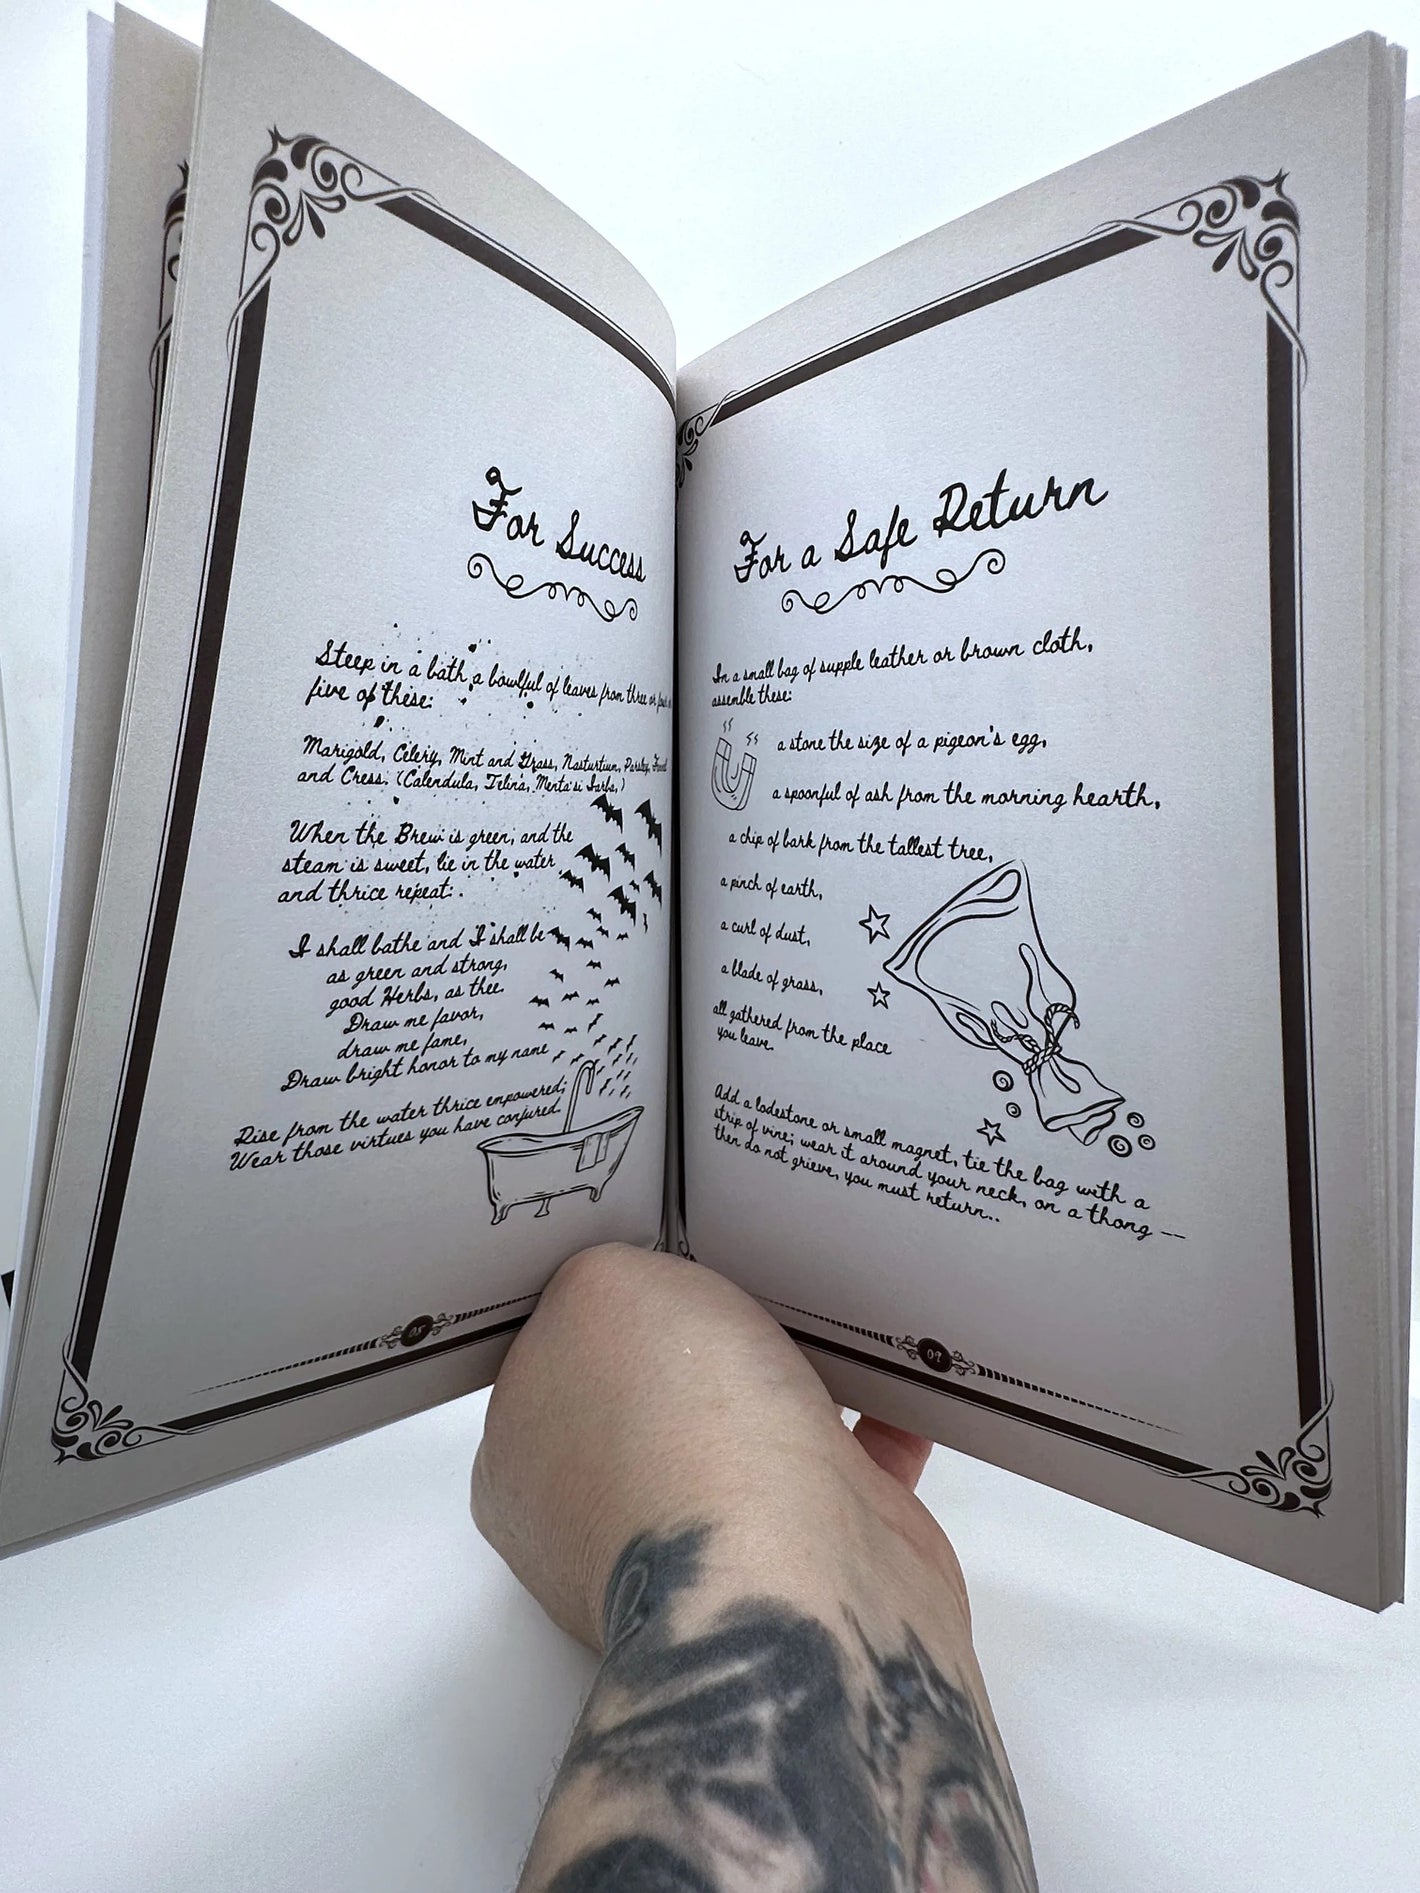 For Success
Steep in a bath a bowlful of leaves from three or
five of these:
Marigold, Celery, Mint and Grass, Nasturtium, Parsley,
and Cress. (Calendula, Telina, Menta si Iarba,)
When the Brew is green, and the
steam is sweet, lie in the water
and thrice repeat:
I shall bathe and I shall be
as green and strong,
good Herbs, as thee.
Draw me favor,
draw me fame,
Draw bright honor to my name
Rise from the water thrice empowered;
Wear those virtues you have conjured.
For a Safe Return
In a small bag of supple leather or brown cloth,
assemble these:
a stone the size of a pigeon's egg,
a spoonful of ash from the morning hearth,
a chip of bark from the tallest tree,
a pinch of earth,
a curl of dust,
a blade of grass,
all gathered from the place
you leave.
Add a lodestone or small magnet, tie the bag with a
strip of vine; wear it around your neck, on a thong --
then do not grieve, you must return..